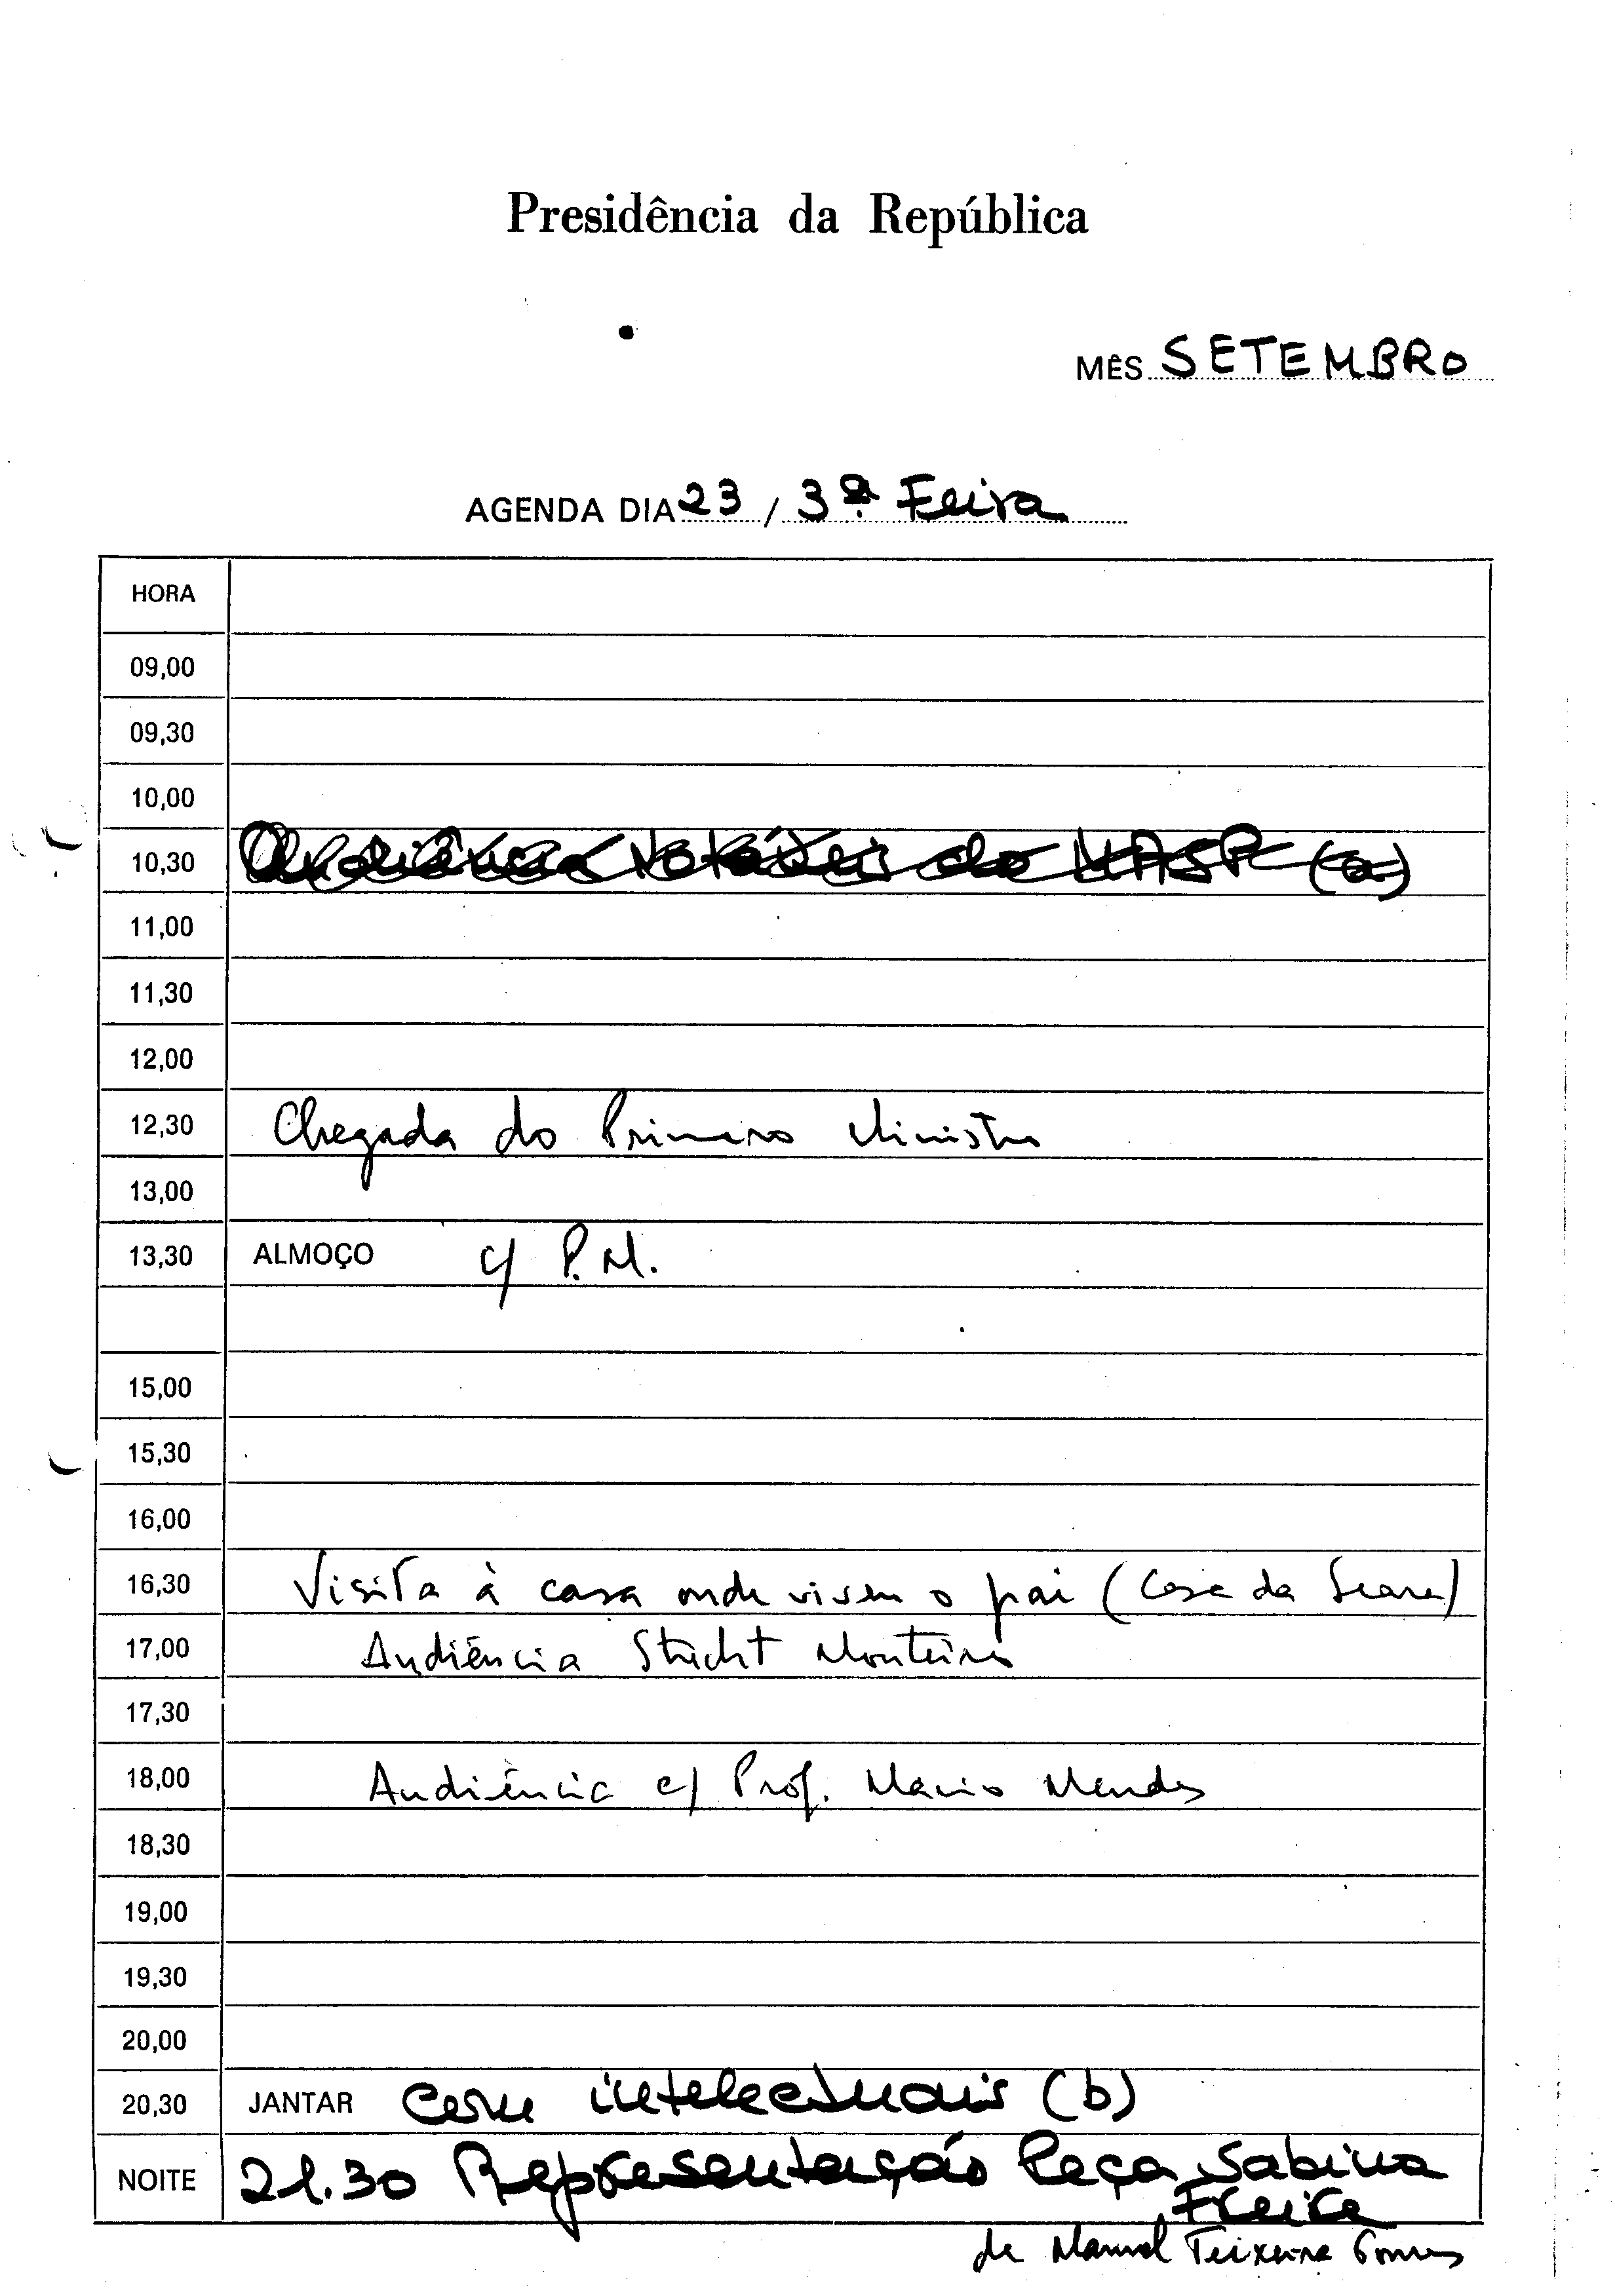 Presidência da República
MÊS SETEMBRO
AGENDA DIA 23 / 3ª Feira
HORA
09,00
09,30
10,00
10,30 Audiência Notáveis do MASP (a)
11,00
11,30
12,00
12,30 Chegada do Primeiro Ministro
13,00
13,30 ALMOÇO c/ P.M.
15,00
15,30
16,00
16,30 Visita à casa onde viveu o pai (Casa da Seara)
17,00 Audiência Stricht Monteiro
17,30
18,00 Audiência c/ Prof. Mário Mendes
18,30
19,00
19,30
20,00
20,30 JANTAR com intelectuais (b)
NOITE 21.30 Representação Peça Sabina
Freire
de Manuel Teixeira Gomes